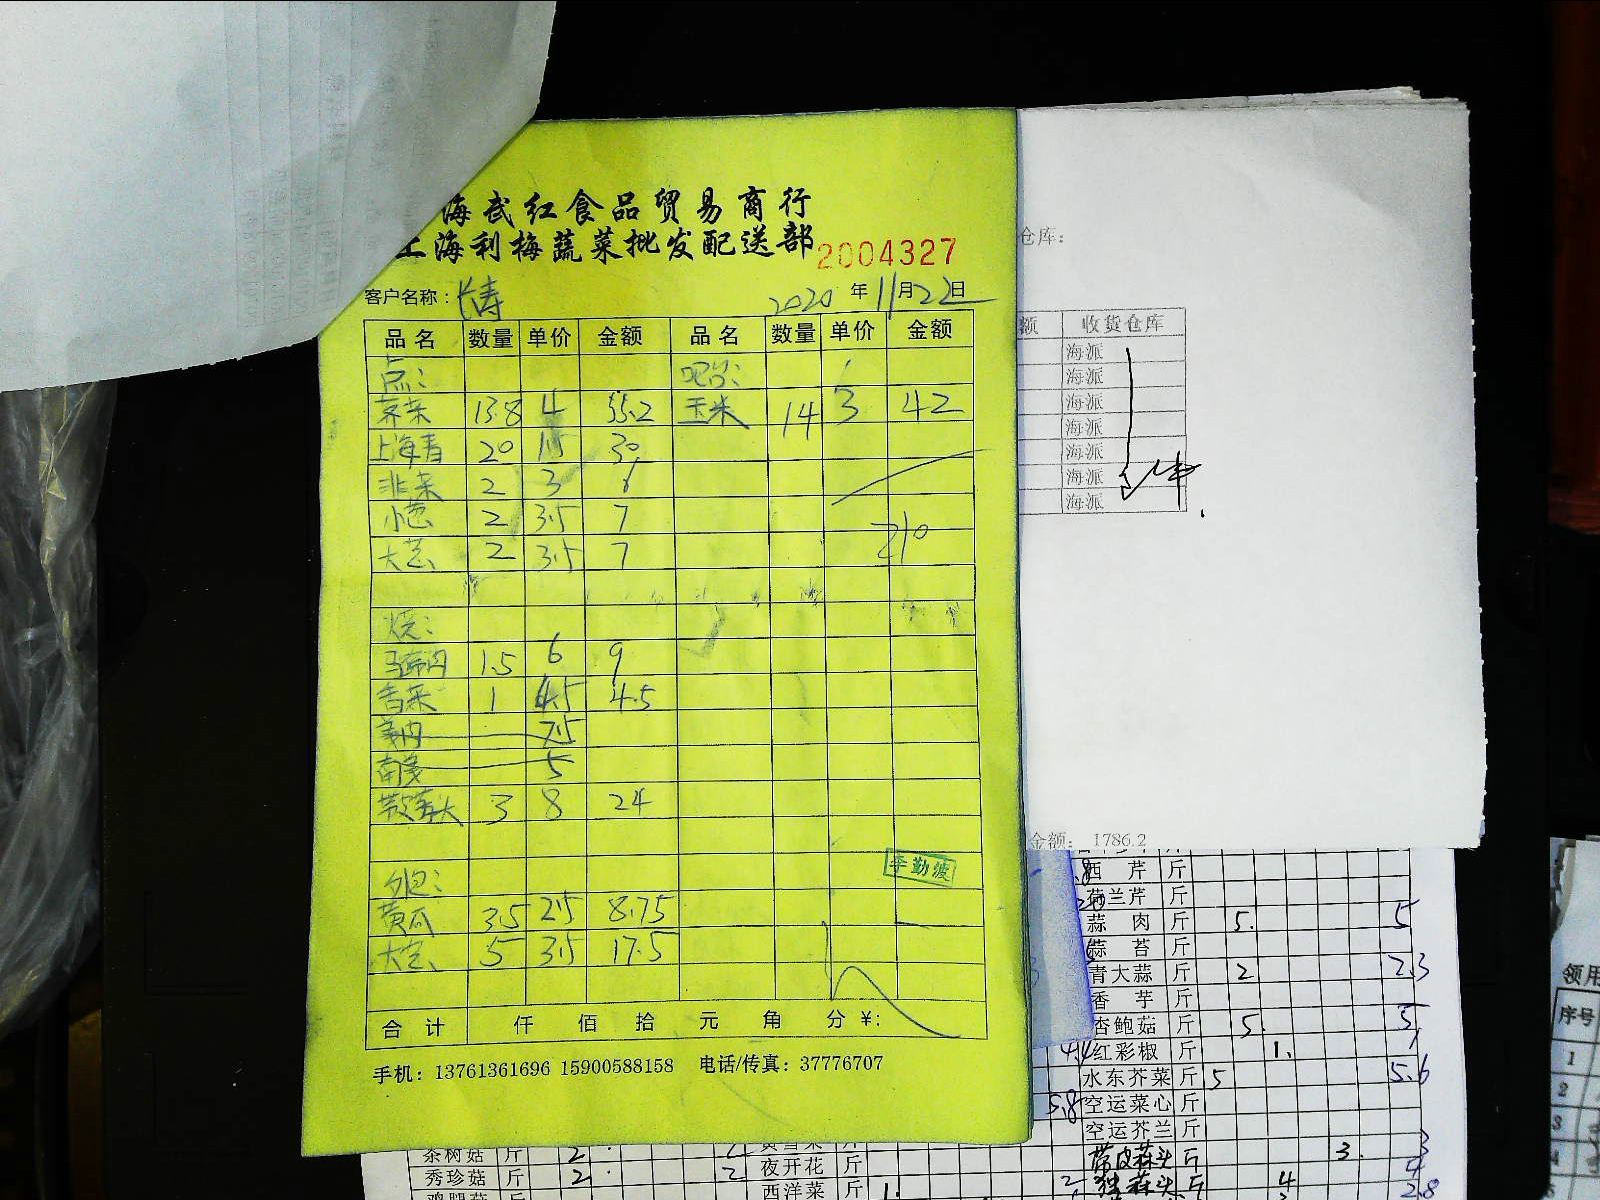 海武红食品贸易商行
上海利梅蔬菜批发配送部 2004327
客户名称: 2020 年 11月22日
品名 数量 单价 金额 品名 数量 单价 金额
点: 吧台:
荠菜 13.8 4 55.2 玉米 14 3 42
上海青 20 1.5 30
韭菜 2 3 6
小葱 2 3.5 7
大葱 2 3.5 7
210
烧:
马蹄肉 1.5 6 9
香菜 1 4.5 4.5
7.5
5
带皮蒜头 3 8 24
李勤波
黄瓜 3.5 2.5 8.75
大葱 5 3.5 17.5
合计 仟 佰 拾 元 角 分 ¥:
手机: 13761361696 15900588158 电话/传真: 37776707
仓库:
额 收货仓库
海派
海派
海派
海派
海派
海派
海派
金额: 1786.2
西芹 斤
荷兰芹 斤
蒜肉 斤 5. 5
蒜苔 斤
青大蒜 斤 2 2.3
香芋 斤
杏鲍菇 斤 5. 5
红彩椒 斤 1.
水东芥菜 斤 5 5.6
5.8 空运菜心 斤
空运芥兰 斤
带皮蒜头 斤 3. 3
独蒜头 斤 4 4
茶树菇 斤 2
秀珍菇 斤 2 2 夜开花 斤
鸡腿菇 斤 西洋菜 斤 1.
2.8
领用
序号
1
2
3
4